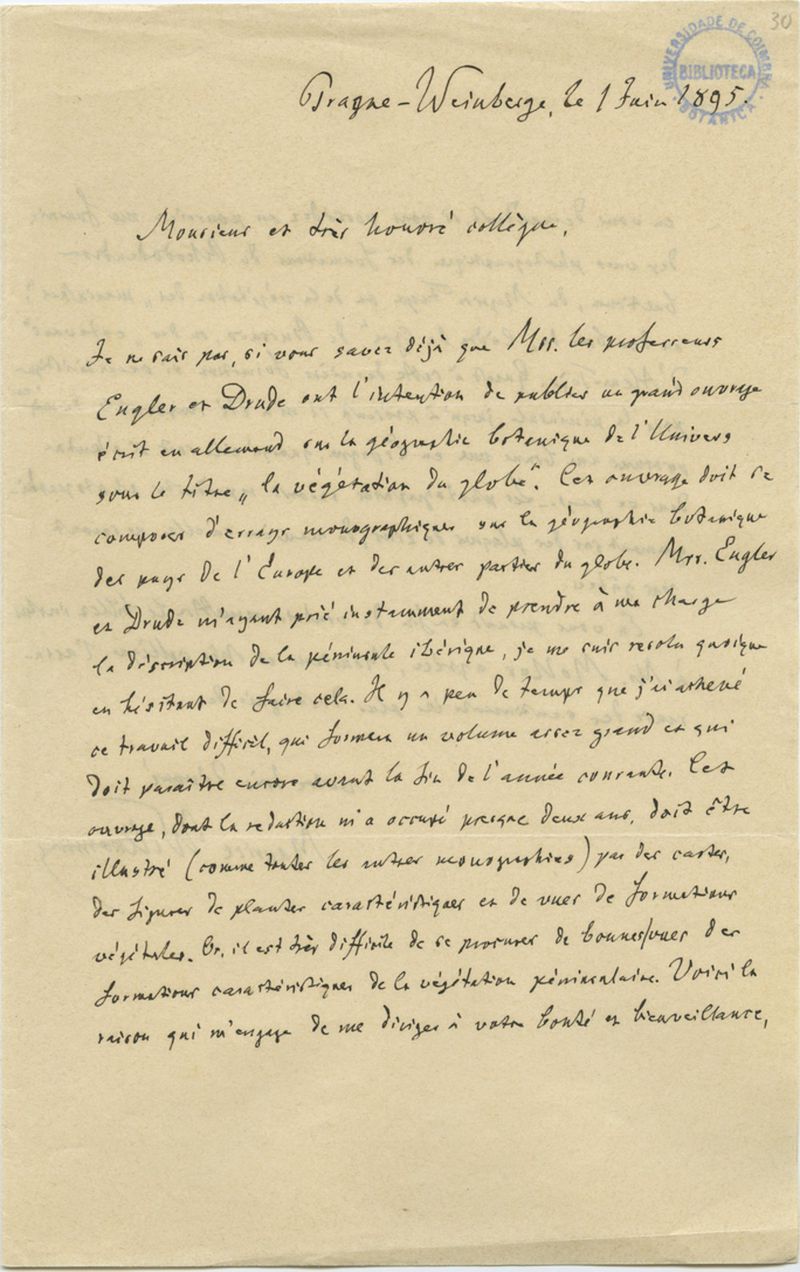 30
UNIVERSIDADE DE COIMBRA
BIBLIOTECA
BOTANICA
Prague-Weinberge, le 1 Juin 1895.
Monsieur et très honoré collègue,
Je ne sais pas, si vous savez déjà que Mrs. les professeurs
Engler et Drude ont l'intention de publier un grand ouvrage
écrit en allemand sur la géographie botanique de l'Univers
sous le titre „la végétation du globe“. Cet ouvrage doit se
composer d'essays monographiques sur la géographie botanique
des pays de l'Europe et des autres parties du globe. Mrs. Engler
et Drude m'ayant prié instamment de prendre à ma charge
la déscription de la péninsule ibérique, je me suis resolu quoique
en hésitant de faire cela. Il y a peu de temps que j'ai achevé
ce travail difficil, qui formera un volume assez grand et qui
doit paraître encore avant la fin de l'année courante. Cet
ouvrage, dont la redaction m'a occupé presque deux ans, doit être
illustré (comme toutes les autres monographies) par des cartes,
des figures de plantes caractéristiques et de vues de formations
végétales. Or, il est très difficile de se procurer de bonnes vues des
formations caractéristiques de la végétation péninsulaire. Voici la
raison qui m'engage de me diriger à votre bonté et bienveillance,